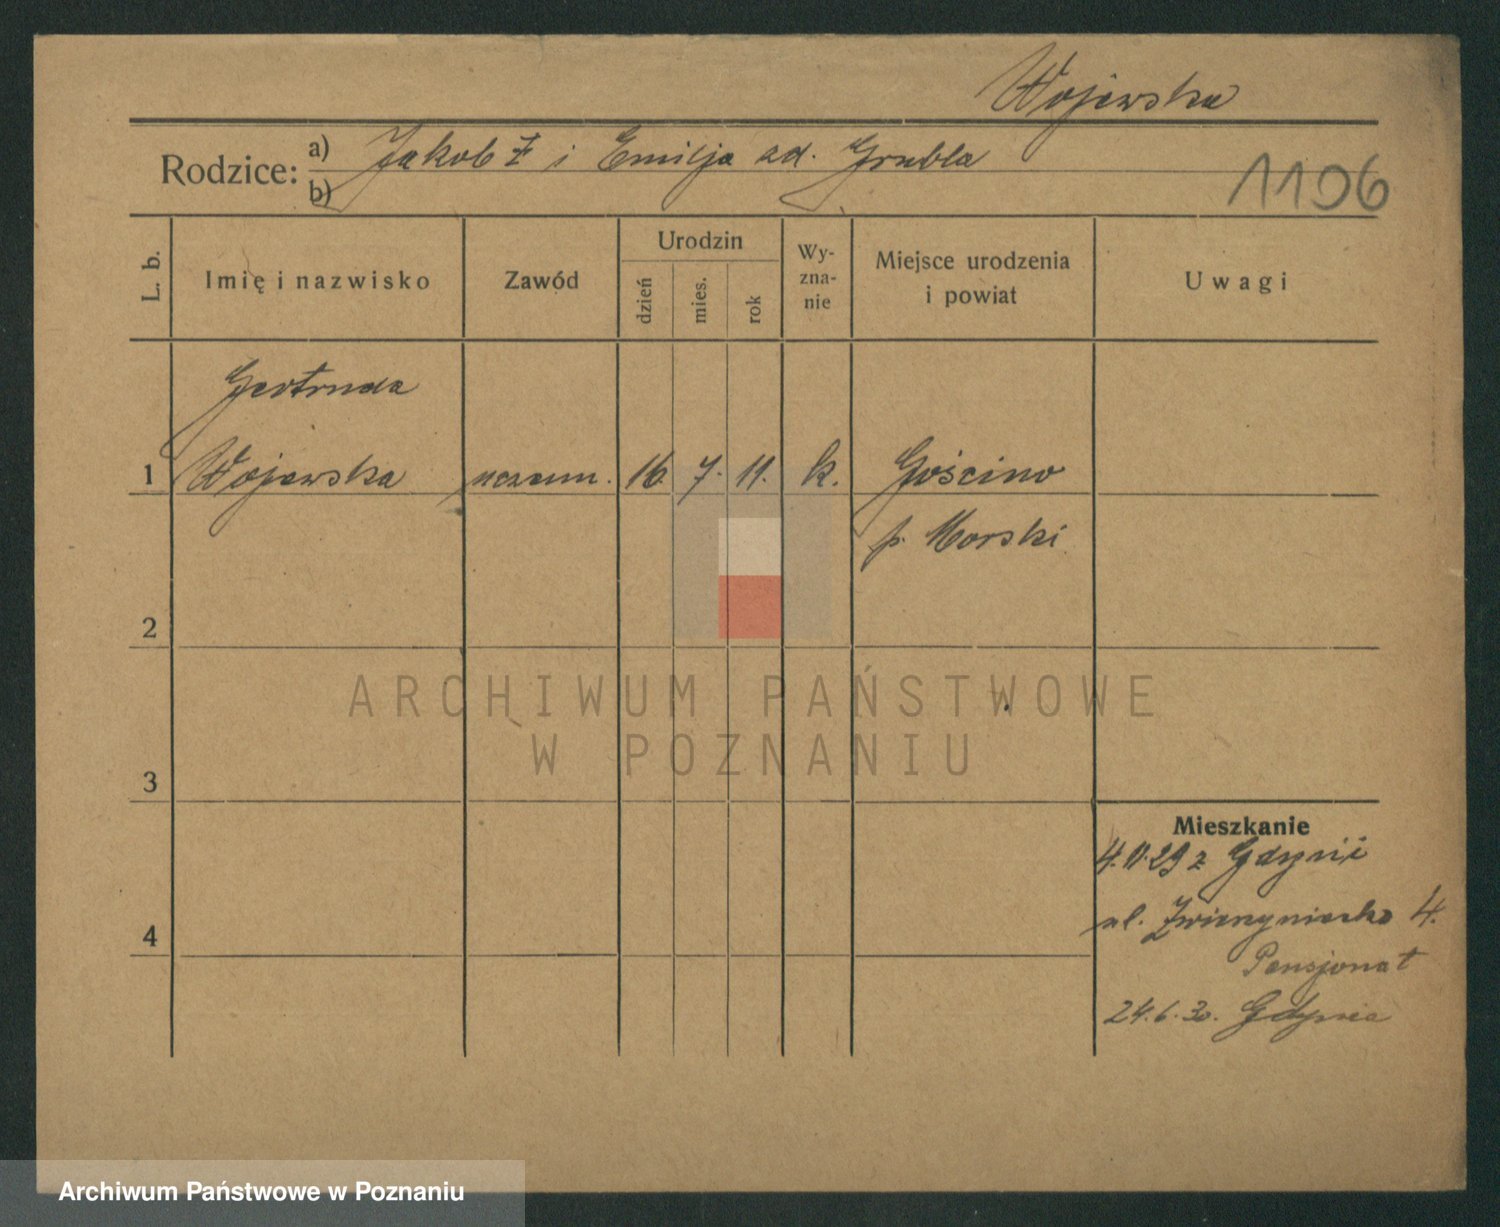 Wojewska
Rodzice: a) Jakob Ƶ i Emilja zd. Grubla
b)
1106
L. b.
Imię i nazwisko
Zawód
Urodzin
dzień
mies.
rok
Wy-
zna-
nie
Miejsce urodzenia
i powiat
Uwagi
Gertruda
1 Wojewska uczenn. 16 7. 11. k. Gościno
p. Morski
2
3
4
Mieszkanie
4.11.29 z Gdyni
ul. Zwierzyniecka 4.
Pensjonat
24.6.30. Gdynia
ARCHIWUM PAŃSTWOWE
W POZNANIU
Archiwum Państwowe w Poznaniu